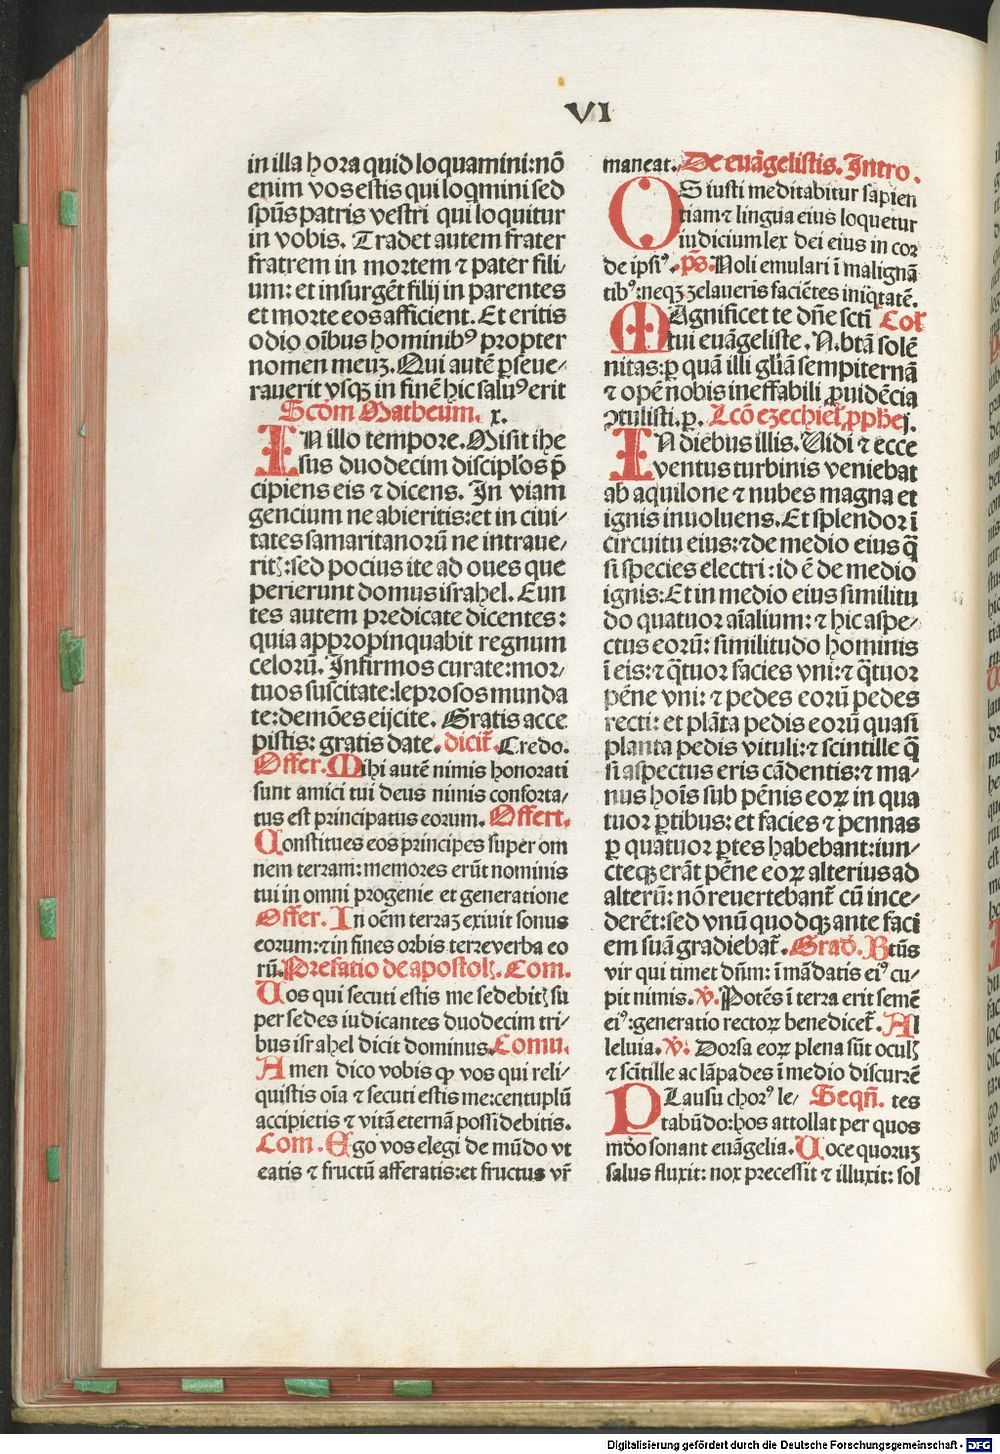 VI
in illa hora quid loquamini: nō
enim vos estis qui loqmini sed
spūs patris vestri qui loquitur
in vobis. Tradet autem frater
fratrem in mortem ⁊ pater fili⸗
um: et insurgēt filij in parentes
et morte eos afficient. Et eritis
odio oībus hominibꝰ propter
nomen meuꝫ. Qui autē ꝑseue⸗
rauerit vsqꝫ in finē hic saluꝰ erit
Scd̄m Matheum. x.
IN illo tempore. Misit ihe
sus duodecim discipl'os p̄
cipiens eis ⁊ dicens. In viam
gencium ne abieritis: et in ciui⸗
tates samaritanorū ne intraue⸗
ritꝭ: sed pocius ite ad oues que
perierunt domus israhel. Eun
tes autem predicate dicentes:
quia appropinquabit regnum
celorū. Infirmos curate: mor⸗
tuos suscitate: leprosos munda
te: demōes eijcite. Gratis acce
pistis: gratis date. dicit̄. Credo.
Offer. Mihi autē nimis honorati
sunt amici tui deus nimis conforta⸗
tus est principatus eorum. Offert.
Constitues eos principes super om
nem terram: memores erūt nominis
tui in omni progenie et generatione
Offer. In oēm terraꝫ exiuit sonus
eorum: ⁊ in fines orbis terre verba eo
rū. Prefatio de apostolꝭ. Com.
Vos qui secuti estis me sedebitꝭ su
per sedes iudicantes duodecim tri⸗
bus israhel dicit dominus. Comu.
Amen dico vobis ꝙ vos qui reli⸗
quistis oīa ⁊ secuti estis me: centuplū
accipietis ⁊ vitā eternā possidebitis.
Com. Ego vos elegi de mūdo vt
eatis ⁊ fructū afferatis: et fructus vr̄
maneat. De euāgelistis. Intro.
OS iusti meditabitur sapien
tiam ⁊ lingua eius loquetur
iudicium lex dei eius in cor
de ipsiꝰ. ps̄. Noli emulari ī malignā
tibꝰ: neqꝫ zelaueris faciētes iniqtatē.
MAgnificet te dn̄e scti Col'
tui euāgeliste. N. btā solē
nitas: ꝑ quā illi gl'iā sempiternā
⁊ opē nobis ineffabili ꝓuidēcia
ꝯtulisti. ꝑ. Lcō ezechiel' ꝓphe j.
IN diebus illis. Vidi ⁊ ecce
ventus turbinis veniebat
ab aquilone ⁊ nubes magna et
ignis inuoluens. Et splendor ī
circuitu eius: ⁊ de medio eius q̄
si species electri: id ē de medio
ignis: Et in medio eius similitu
do quatuor aīalium: ⁊ hic aspe⸗
ctus eorū: similitudo hominis
ī eis: ⁊ q̄tuor facies vni: ⁊ q̄tuor
pēne vni: ⁊ pedes eorū pedes
recti: et plāta pedis eorū quasi
planta pedis vituli: ⁊ scintille q̄
si aspectus eris cādentis: ⁊ ma⸗
nus hoīs sub pēnis eoꝝ in qua
tuor ꝑtibus: et facies ⁊ pennas
ꝑ quatuor ꝑtes habebant: iun⸗
cteqꝫ erāt pēne eoꝝ alterius ad
alterū: nō reuertebant̄ cū ince⸗
derēt: sed vnū quodqꝫ ante faci
em suā gradiebat̄. Grad'. Btūs
vir qui timet dūm: ī mādatis eiꝰ cu⸗
pit nimis. v̄. Potēs ī terra erit semē
eiꝰ: generatio rectoꝝ benedicet̄. Al
leluia. v̄. Dorsa eoꝝ plena sūt oculꝭ
⁊ scitille ac lāpades ī medio discurrē
PLausu chorꝰ le⸗ Seqn̄. tes
tabūdo: hos attollat per quos
mūdo sonant euāgelia. Voce quoruꝫ
salus fluxit: nox precessit ⁊ illuxit: sol
Digitalisierung gefördert durch die Deutsche Forschungsgemeinschaft - DFG